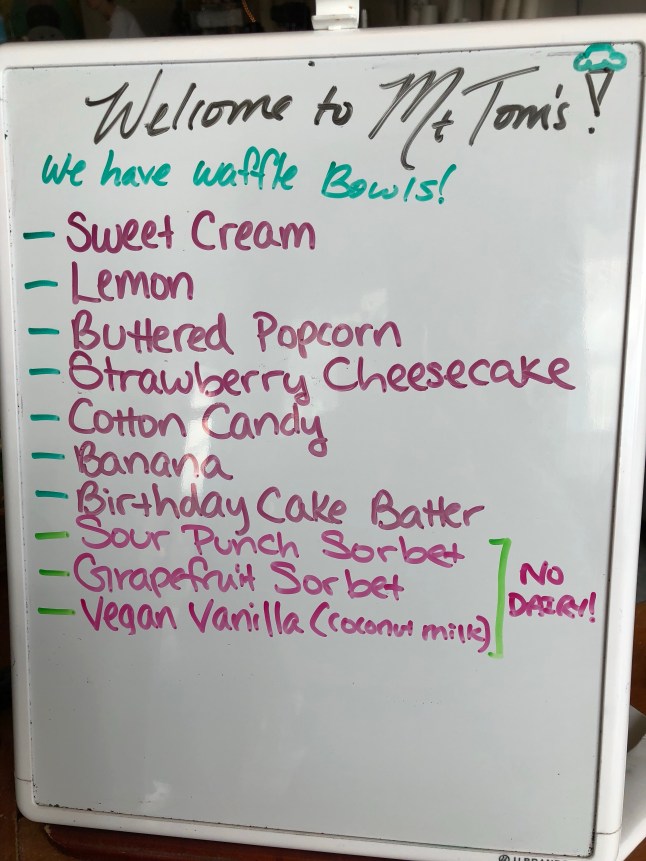 Welcome to Mt Tom's!
We have waffle Bowls!
- Sweet Cream
- Lemon
- Buttered Popcorn
- Strawberry Cheesecake
- Cotton Candy
- Banana
- Birthday Cake Batter
- Sour Punch Sorbet
- Grapefruit Sorbet
- Vegan Vanilla (coconut milk)
NO
DAIRY!